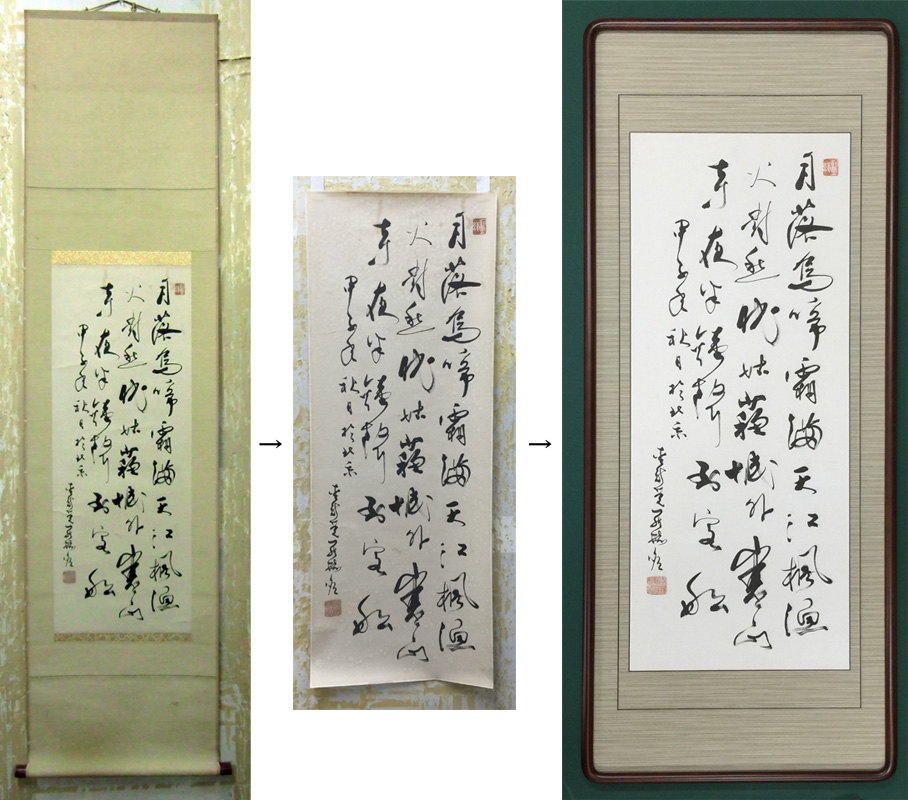 月落烏啼霜滿天江楓漁
火對愁眠姑蘇城外寒山
寺夜半鐘聲到客船
甲子年秋日於北京
月落烏啼霜滿天江楓漁
火對愁眠姑蘇城外寒山
寺夜半鐘聲到客船
甲子年秋日於北京
月落烏啼霜滿天江楓漁
火對愁眠姑蘇城外寒山
寺夜半鐘聲到客船
甲子年秋日於北京